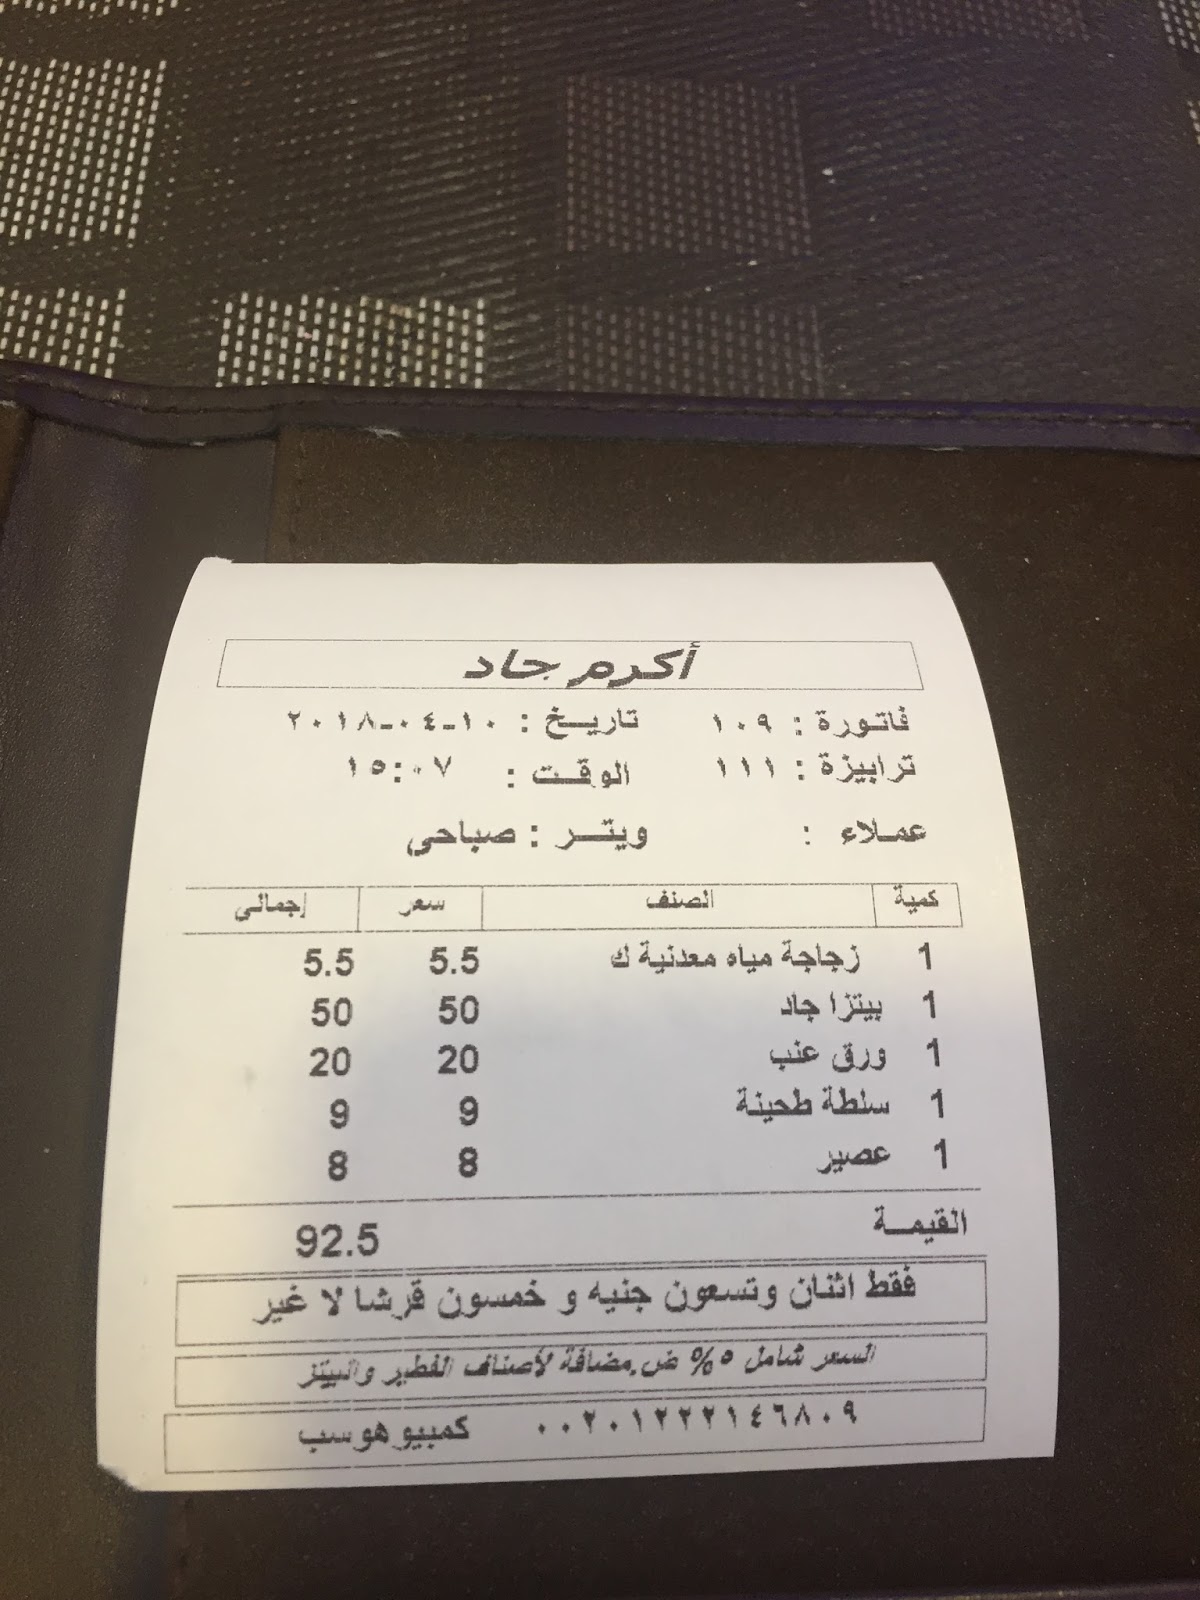 أكرم جاد
فاتورة : ١٠٩ تاريخ : ١٠-٠٤-٢٠١٨
ترابيزة : ١١١ الوقت : ١٥:٠٧
عملاء : ويتر : صباحى
كمية الصنف سعر إجمالي
1 زجاجة مياه معدنية ك 5.5 5.5
1 بيتزا جاد 50 50
1 ورق عنب 20 20
1 سلطة طحينة 9 9
1 عصير 8 8
القيمة 92.5
فقط اثنان وتسعون جنيه و خمسون قرشا لا غير
السعر شامل ٥% ض.مضافة لأصناف الفطير والبيتز
٠٠٢٠١٢٢٢١٤٦٨٠٩ كمبيو هوسب